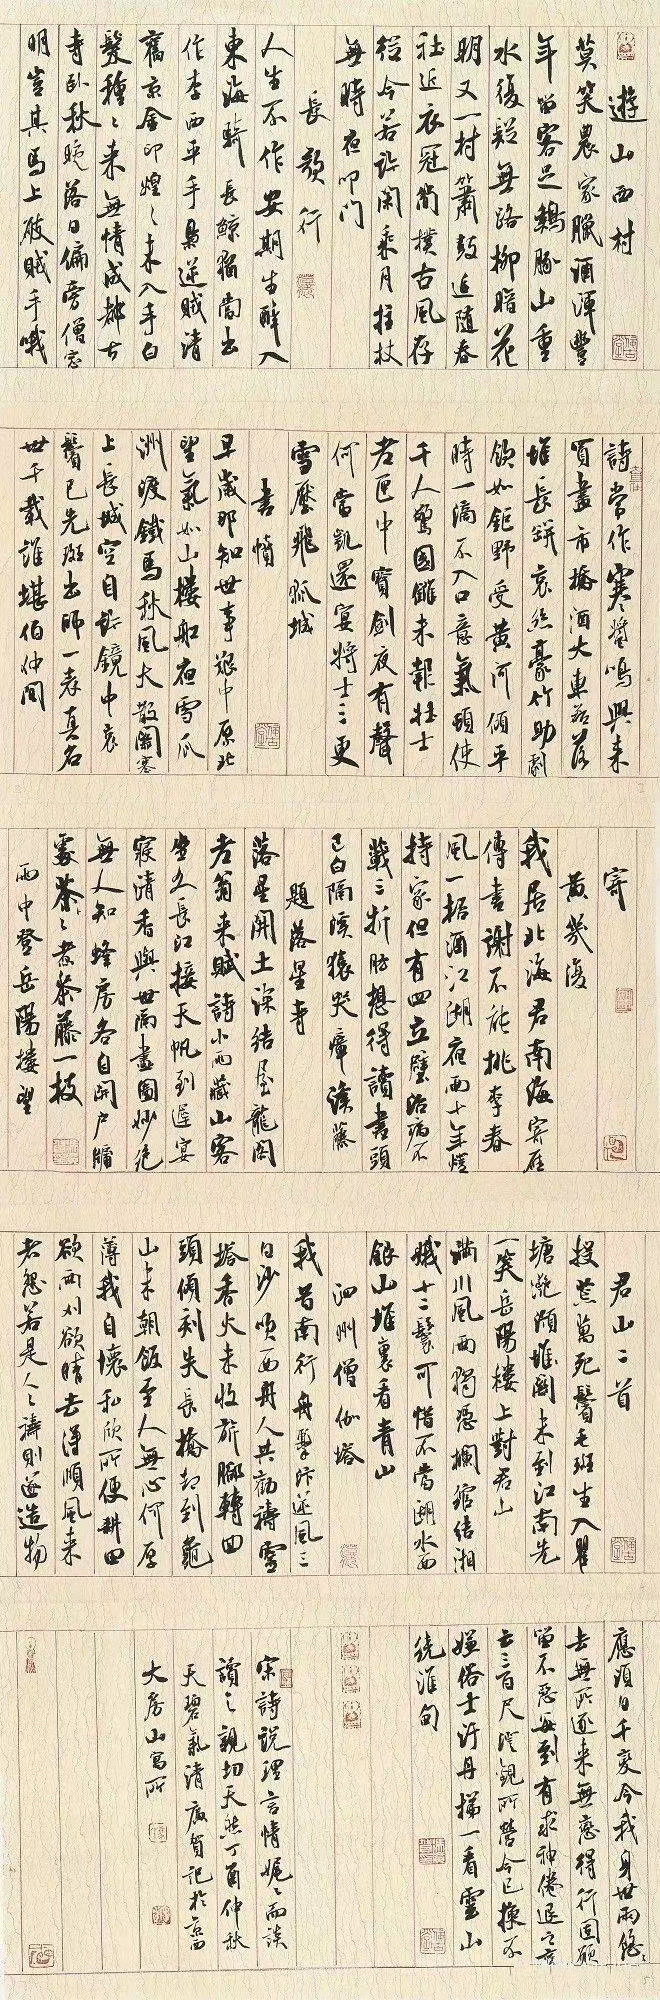 遊山西村
莫笑農家臘酒渾豐
年留客足鷄豚山重
水復疑無路柳暗花
明又一村簫鼓追隨春
社近衣冠簡樸古風存
從今若許閑乘月拄杖
無時夜叩門
長歌行
人生不作安期生醉入
東海騎長鯨猶當出
作李西平手梟逆賊清
舊京金印煌々未入手白
髮種々來無情成都古
寺卧秋晚落日偏旁僧窗
明豈其馬上破賊手哦
詩常作寒螿鳴興來
買盡市橋酒大車磊落
堆長瓶哀絲豪竹助劇
飲如鉅野受黄河傾平
時一滴不入口意氣頓使
千人驚國讎未報壯士
老匣中寶劍夜有聲
何當凱還宴將士三更
雪壓飛狐城
書憤
早歲那知世事艱中原北
望氣如山樓船夜雪瓜
洲渡鐵馬秋風大散關塞
上長城空自許鏡中衰
鬢已先斑出師一表真名
世千載誰堪伯仲間
寄
黄幾復
我居北海君南海寄雁
傳書謝不能桃李春
風一杯酒江湖夜雨十年燈
持家但有四立壁治病不
蘄三折肱想得讀書頭
已白隔溪猿哭瘴溪藤
題落星寺
落星開士深結屋龍閣
老翁來賦詩小雨藏山客
坐久長江接天帆到遲宴
寢清香與世隔畫圖妙絶
無人知蜂房各自開户牖
處茶々煮茶藤一枝
雨中登岳陽樓望
君山二首
投荒萬死鬢毛斑生入瞿
塘灧澦堆關未到江南先
一笑岳陽樓上對君山
滿川風雨獨憑欄綰結湘
娥十二鬟可惜不當湖水面
銀山堆裏看青山
泗州僧伽塔
我昔南行舟繫汴逆風三
日沙吹面舟人共勸禱靈
塔香火未收旂脚轉回
頭傾刻失長橋却到龜
山未朝飯至人無心何厚
薄我自懷私欣所便耕田
欲雨刈欲晴去得順風來
者怨若是人々禱則遂造物
應須日千變今我身世兩悠々
去無所逐來無戀得行固願
留不惡每到有求神倦退之言
云三百尺澄觀所營今已換不
嫌俗士汙丹梯一看雲山
繞淮甸
宋詩説理言情娓々而談
讀之親切天然丁酉仲秋
天碧氣清廣賀記於京西
大房山寓所